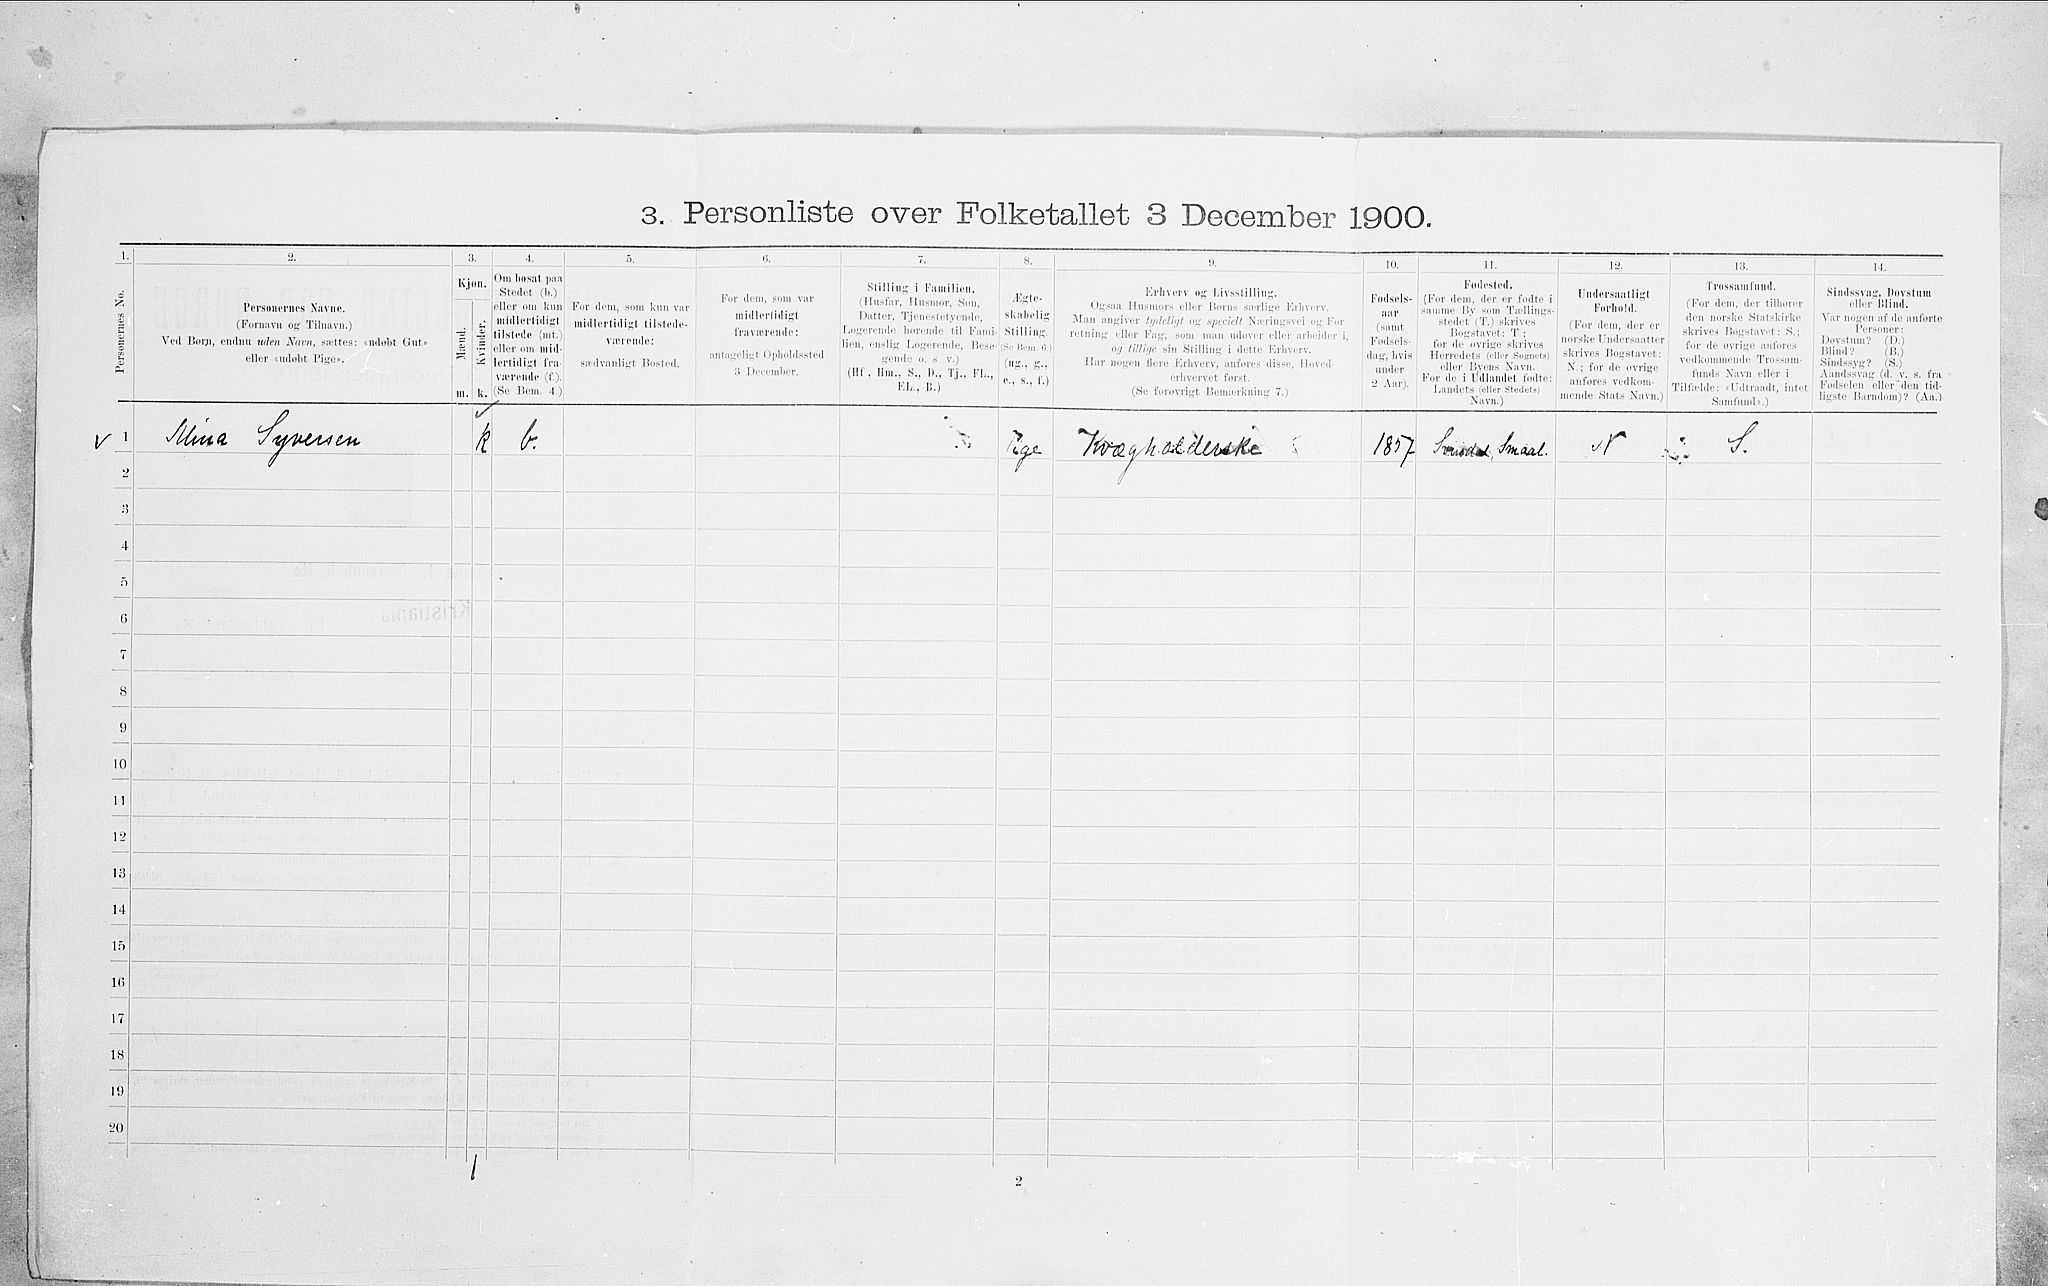 3. Personliste over Folketallet 3 December 1900.
1. 2. 3. 4. 5. 6. 7. 8. 9. 10. 11. 12. 13. 14.
Personernes No.
Personernes Navne.
(Fornavn og Tilnavn.)
Ved Børn, endnu uden Navn, sættes: «udøbt Gut»
eller «udøbt Pige».
Kjøn.
Mænd.
Kvinder.
m. k.
Om bosat paa
Stedet (b.)
eller om kun
midlertidigt
tilstede (mt.)
eller om mid-
lertidigt fra-
værende (f.).
(Se Bem. 4.)
For dem, som kun var
midlertidigt tilstede-
værende:
sædvanligt Bosted.
For dem, som var
midlertidigt
fraværende:
antageligt Opholdssted
3 December.
Stilling i Familien.
(Husfar, Husmor, Søn,
Datter, Tjenestetyende,
Logerende hørende til Fami-
lien, enslig Logerende, Besø-
gende o. s v.)
(Hf, Hm., S., D., Tj., FL.,
EL., B.)
Ægte-
skabelig
Stilling.
(Se Bem. 6.)
(ug., g.,
e., s., f.)
Erhverv og Livsstilling.
Ogsaa Husmors eller Børns særlige Erhverv.
Man angiver tydeligt og specielt Næringsvei og For-
retning eller Fag, som man udøver eller arbeider i,
og tillige sin Stilling i dette Erhverv.
Har nogen flere Erhverv, anføres disse, Hoved-
erhvervet først.
(Se forøvrigt Bemærkning 7.)
Fødsels-
aar
(samt
Fødsels-
dag, hvis
under
2 Aar).
Fødested.
(For dem, der er fødte i
samme By som Tællings-
stedet (T.) skrives
Bogstavet: T;
for de øvrige skrives
Herredets (eller Sognets)
eller Byens Navn.
For de i Udlandet fødte:
Landets (eller Stedets)
Navn.)
Undersaatligt
Forhold.
(For dem, der er
norske Undersaatter
skrives Bogstavet:
N.; for de øvrige
anføres vedkom-
mende Stats Navn.)
Trossamfund.
(For dem, der tilhører
den norske Statskirke
skrives Bogstavet: S.;
for de øvrige anføres
vedkommende Trossam-
funds Navn eller i
Tilfælde: «Udtraadt, intet
Samfund».)
Sindssvag, Døvstum
eller Blind.
Var nogen af de anførte
Personer:
Døvstum? (D.)
Blind? (B.)
Sindssyg? (S.)
Aandssvag (d. v. s. fra
Fødselen eller den tid-
ligste Barndom)? (Aa.)
1 Mina Syversen k b. Pige Kvægholderske 1857 Smaal. N S.
2
3
4
5
6
7
8
9
10
11
12
13
14
15
16
17
18
19
20
1
2